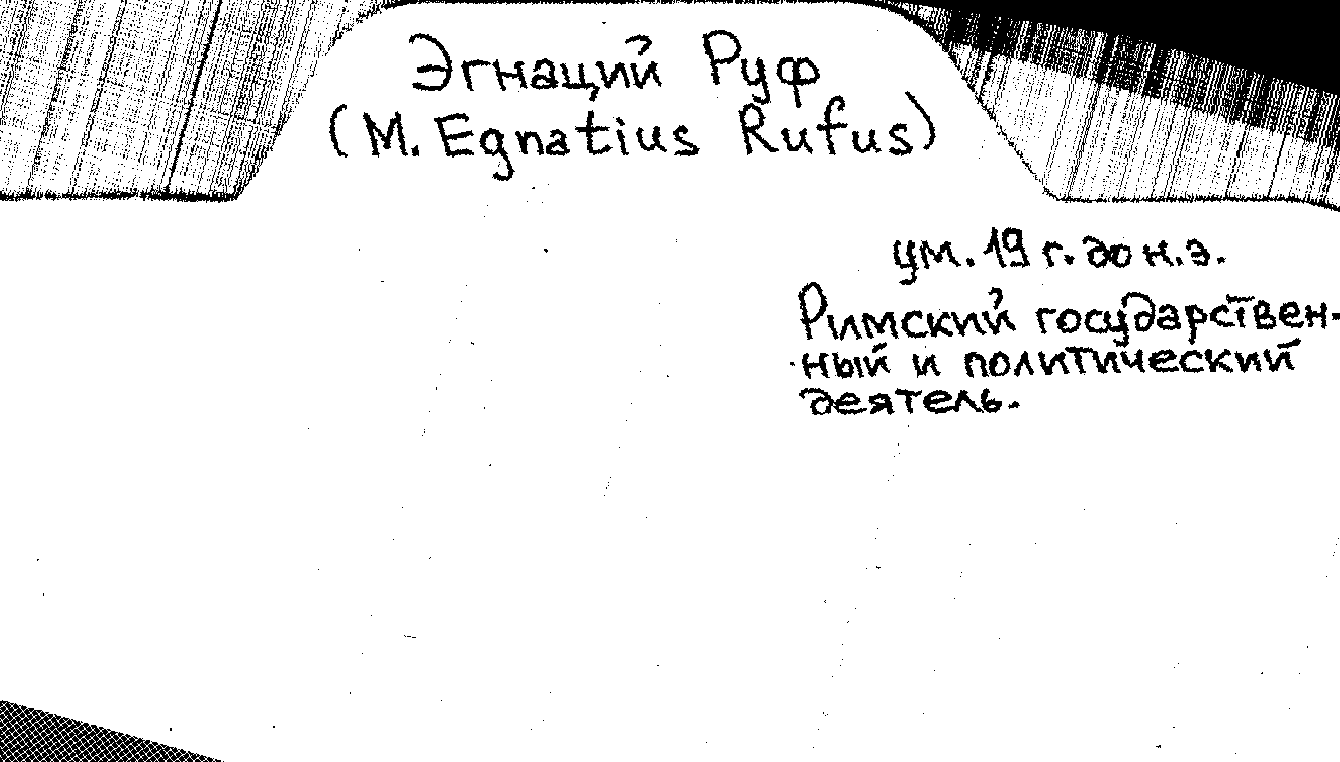 Эгнаций Руф
(M. Egnatius Rufus)
ум. 19 г. до н.э.
Римский государствен-
ный и политический
деятель.